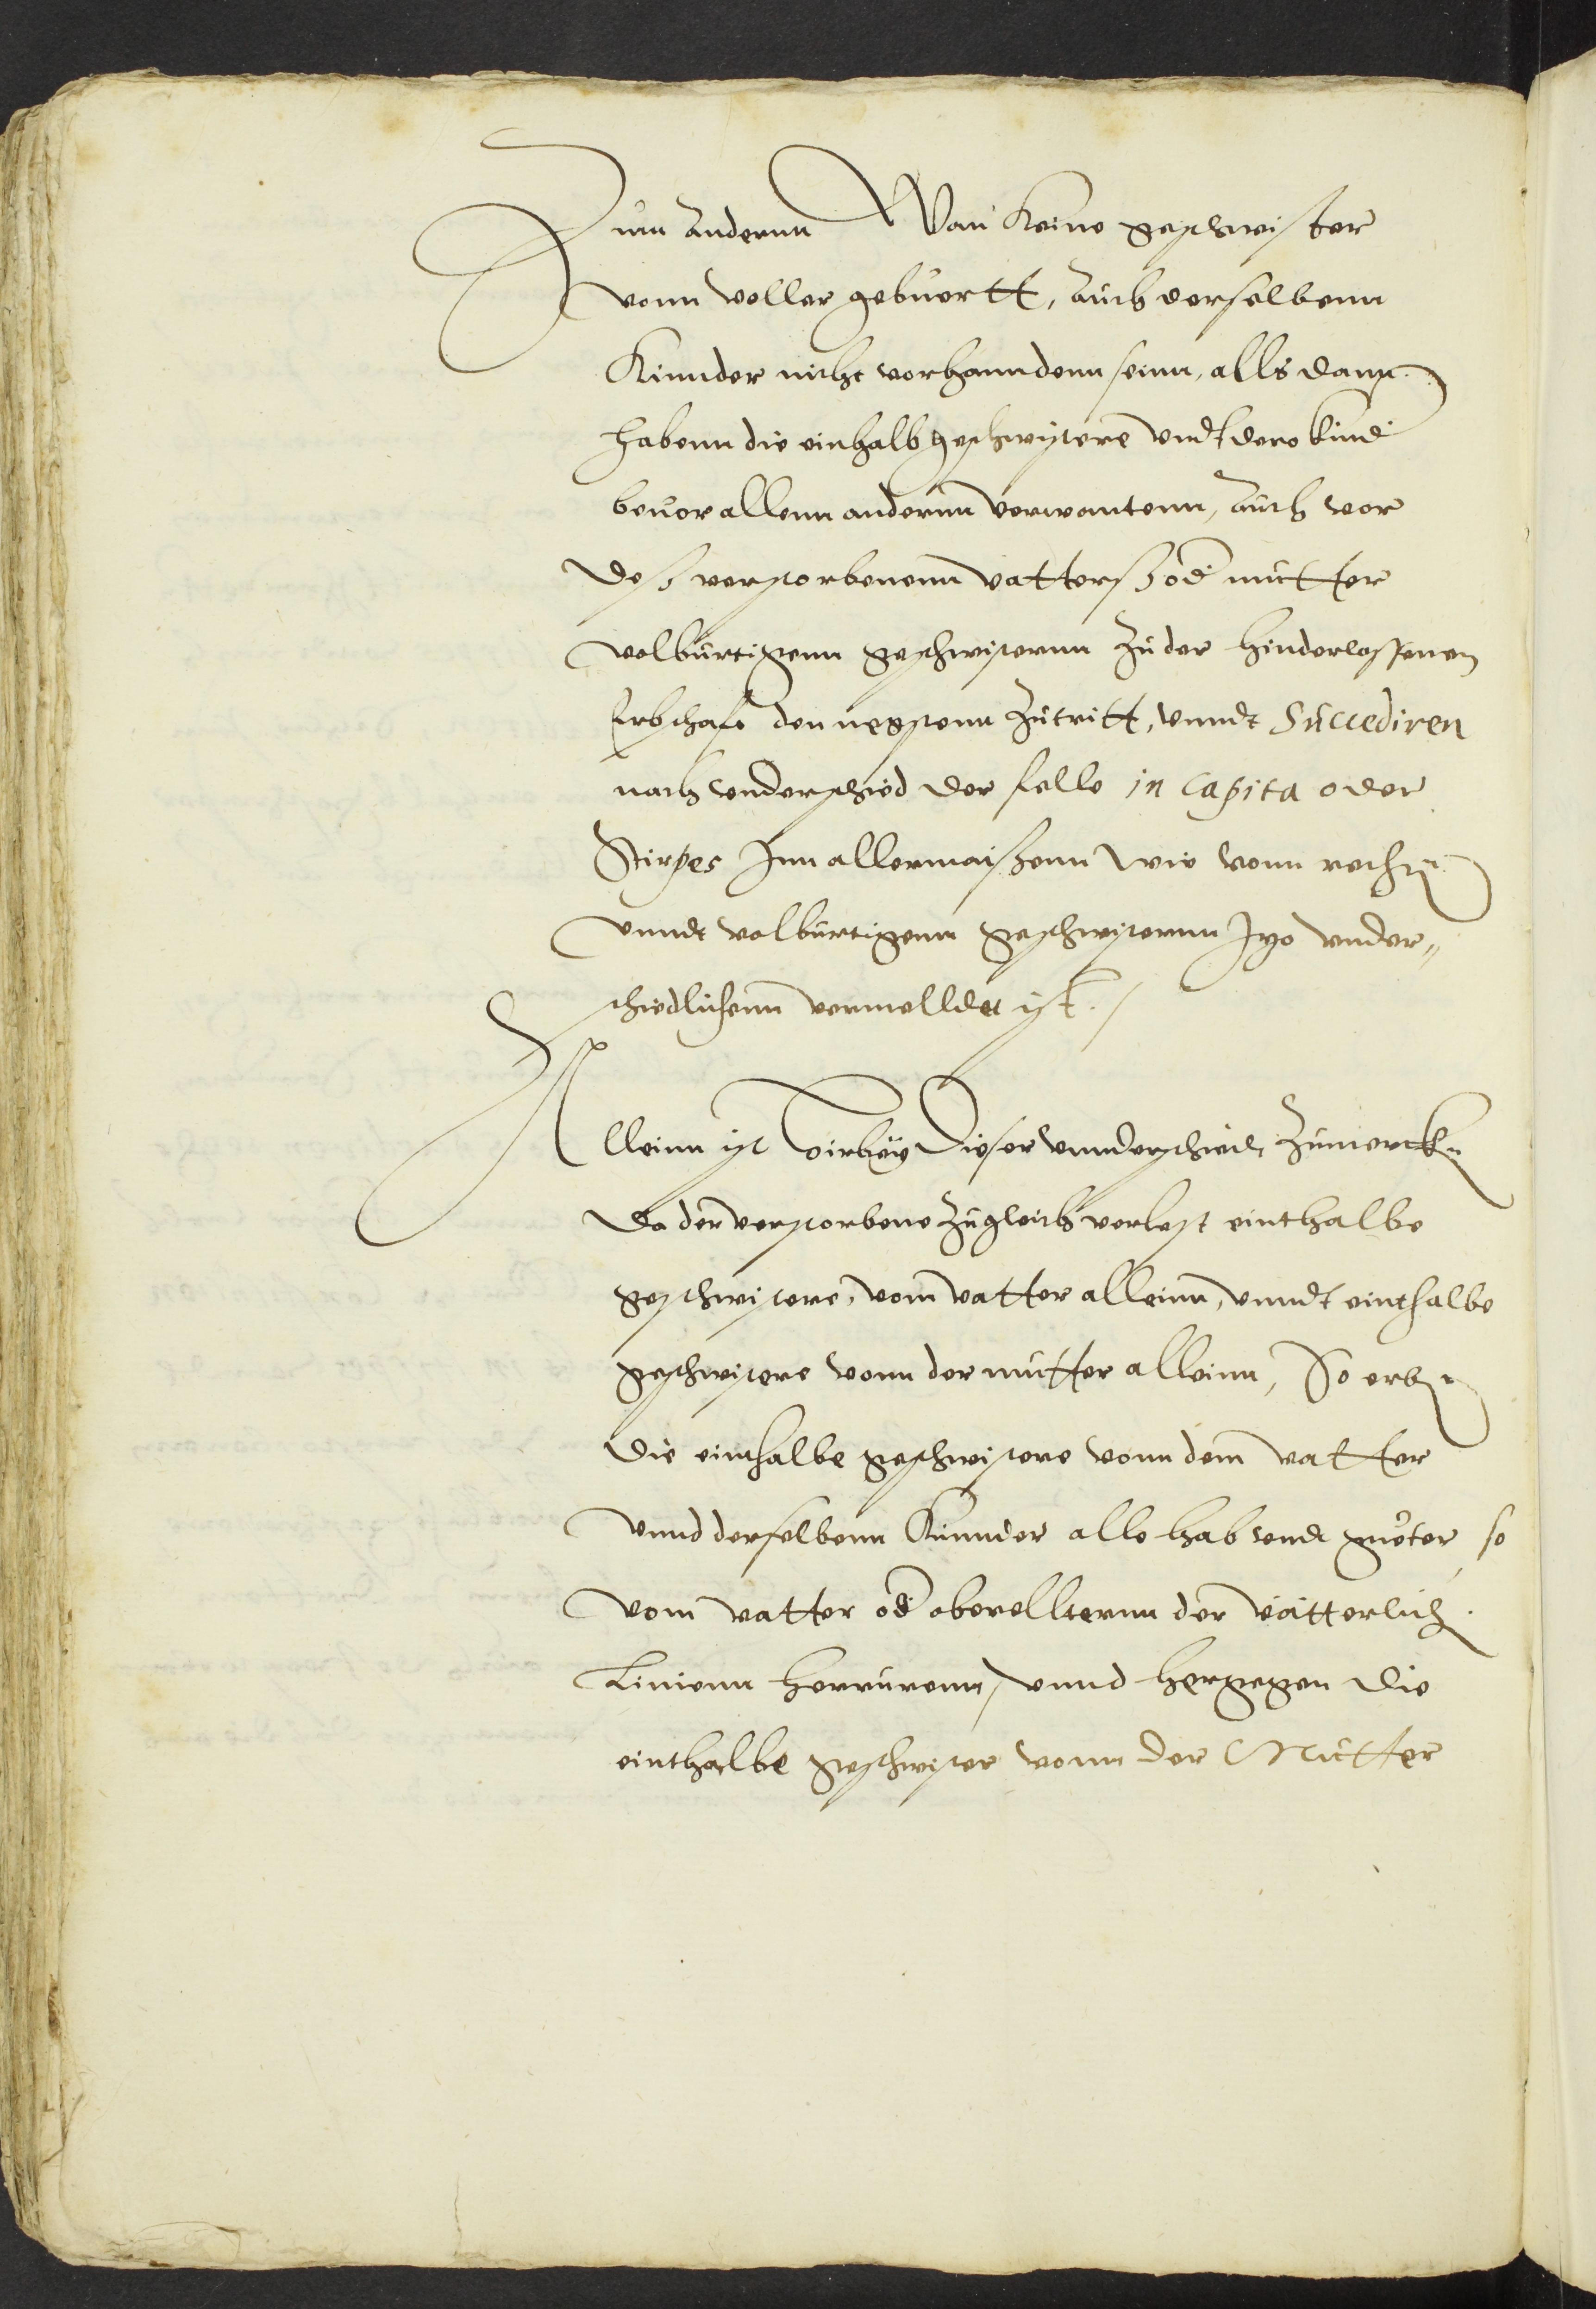 Zum Andernn Wan Keine geschwister
vonn voller gebuertt, Auch derselbenn
Kinnder nicht vorhanndenn seinn, alls dann
habenn die einhalb geschwistere vndt dero kind
beuor allenn andernn verwantenn, Auch vor
deß verstorbenenn vatterß od mutter
volburtigenn geschwisternn Zu der hinderlassenen
Erbschafft den negstenn Zutritt, vnndt Succediren
nach vnderschied der felle in Capita oder
Stirpes Inn allermaißenn wie vonn rechtn
vnndt volburtigenn geschwisternn Izo vnder„
schiedlichenn vermelldet ist. /
Alleinn ist hirbey Dieser vnnderschiedt Zumerckn
Da der verstorbene Zugleich verlest eint halbe
geschwistere, vom vatter alleinn, vnndt einthalbe
geschwistere vonn der mutter alleinn, So erbn
die einthalbe geschwistere vonn dem vatter
vnnd derselbenn Kinnder alle hab vnndt gueter, so
vom vatter od oberelltternn der vätterlich
Linienn herrurenn, vnnd hergegen die
einthalbe geschwister vonn der Mutter